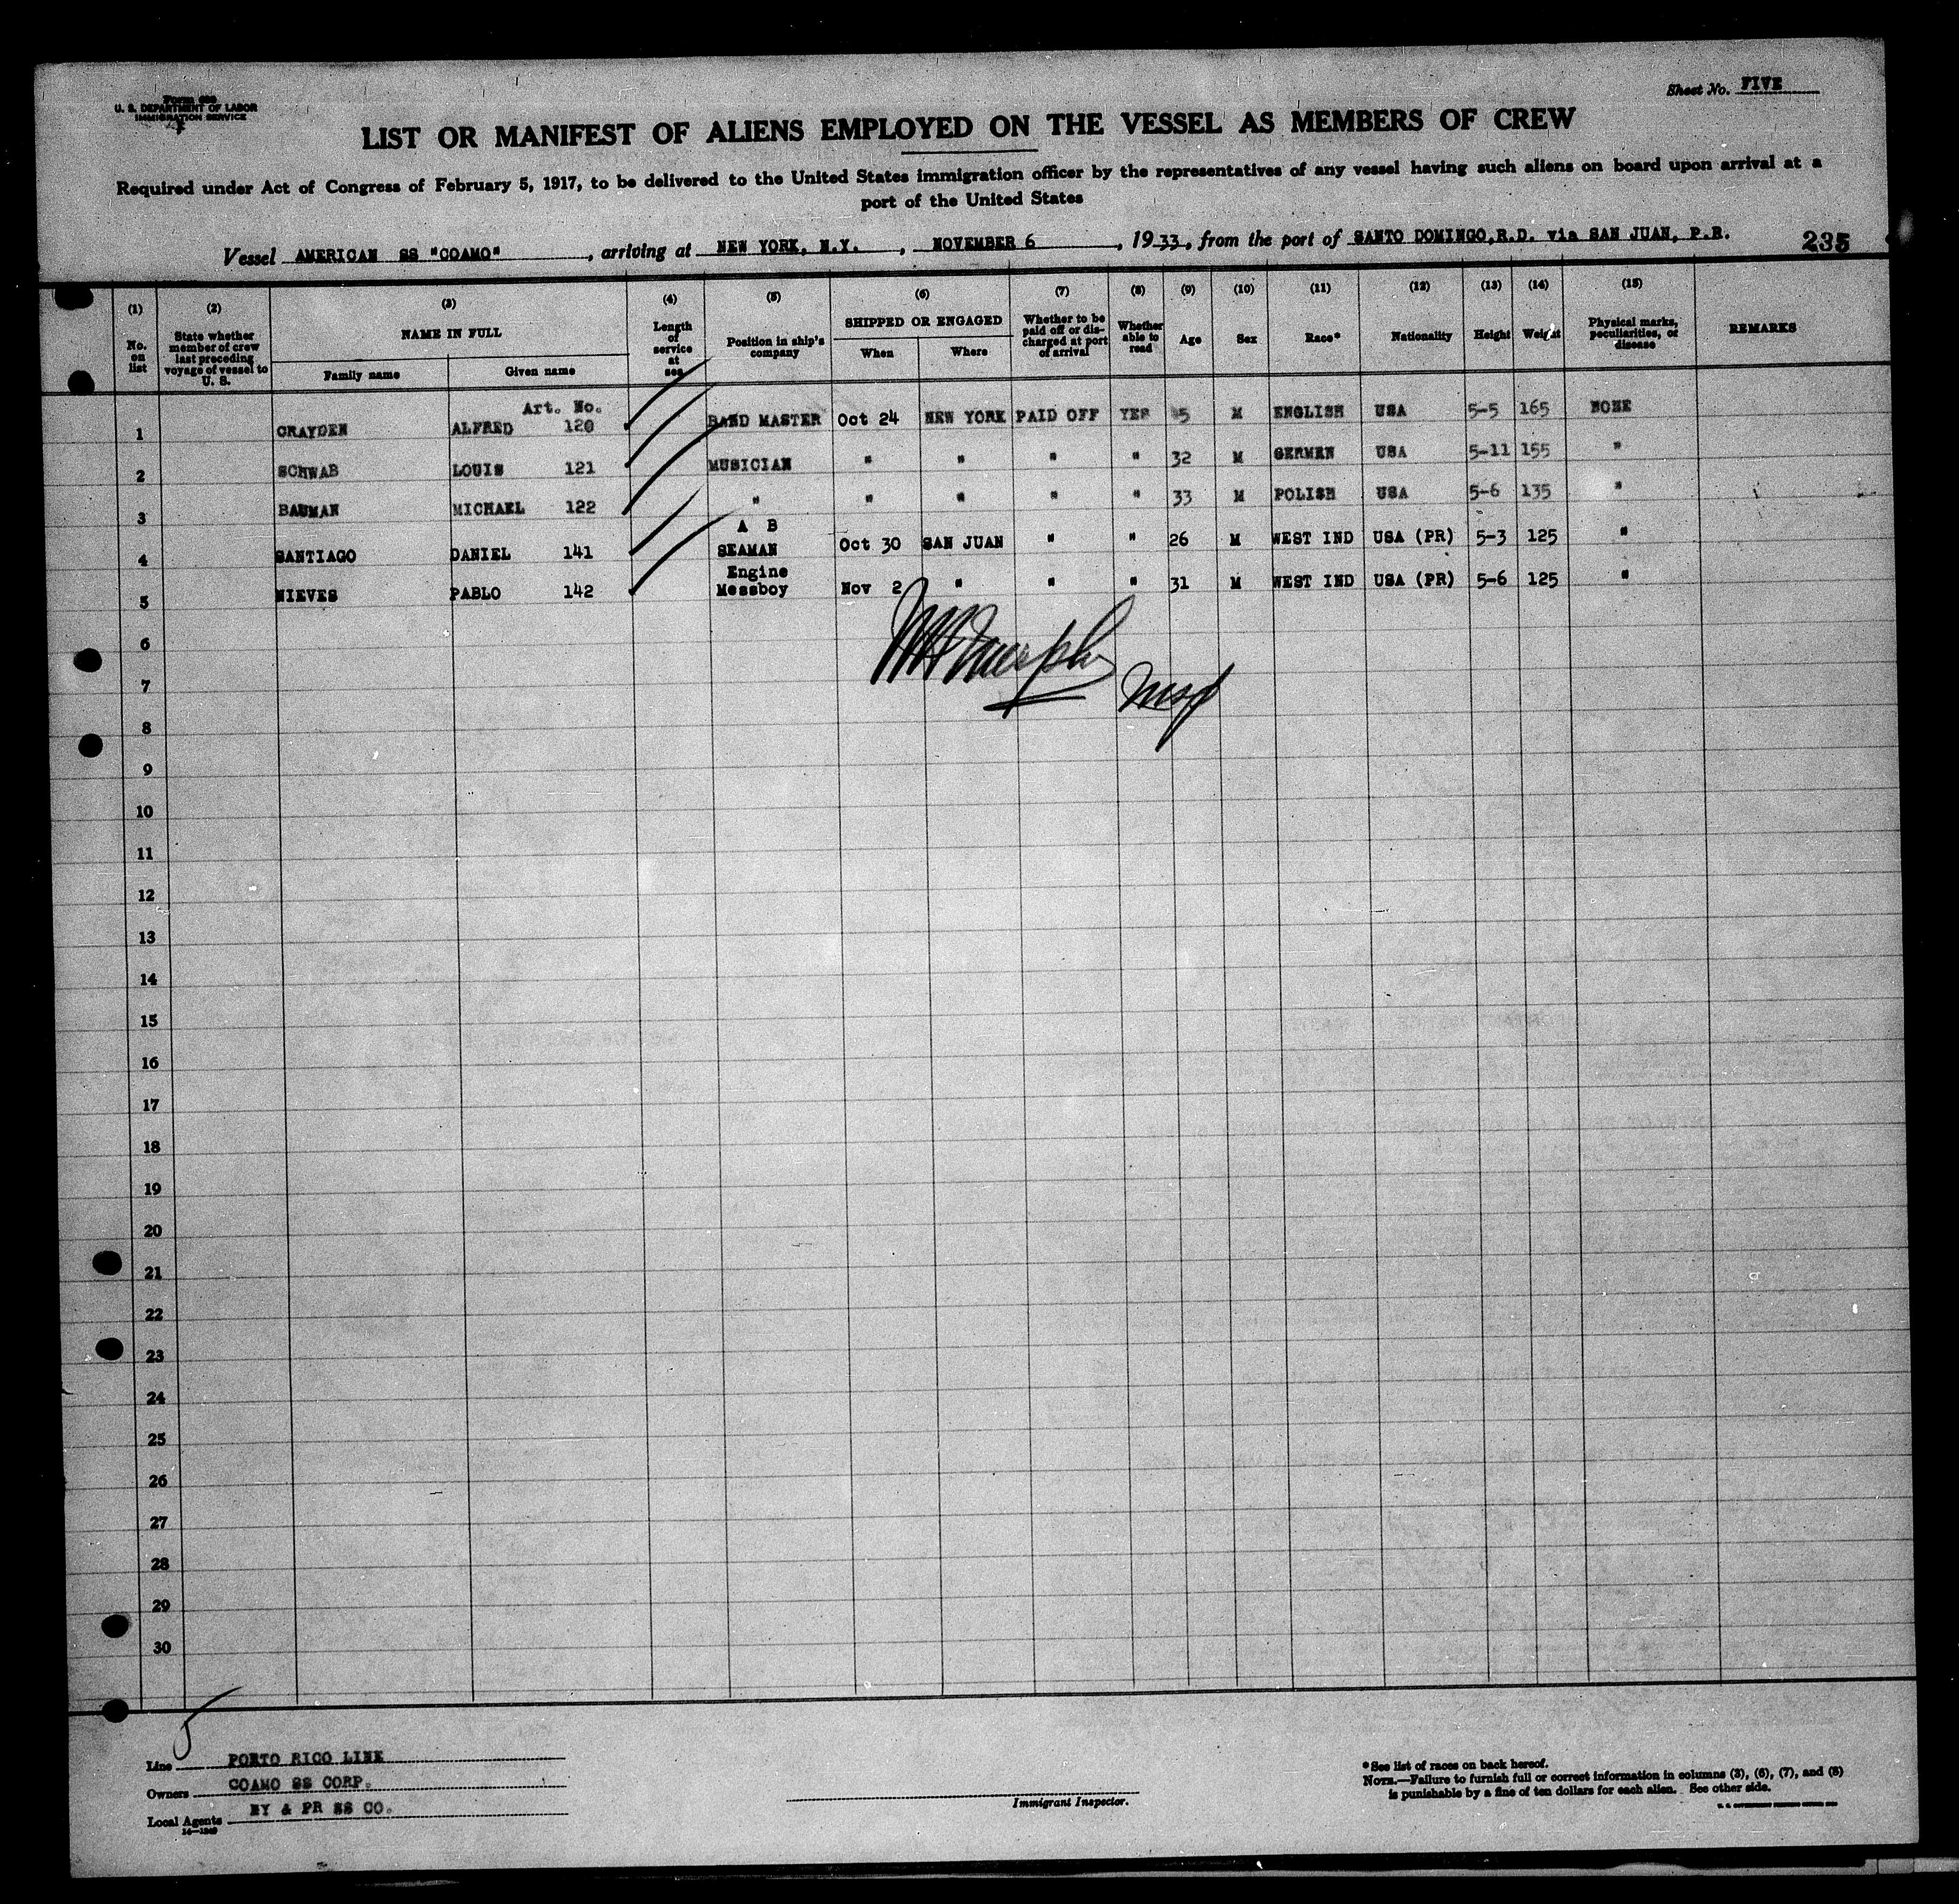 U. S. DEPARTMENT OF LABOR
IMMIGRATION SERVICE
Sheet No. FIVE
LIST OR MANIFEST OF ALIENS EMPLOYED ON THE VESSEL AS MEMBERS OF CREW
Required under Act of Congress of February 5, 1917, to be delivered to the United States immigration officer by the representatives of any vessel having such aliens on board upon arrival at a
port of the United States
Vessel AMERICAN SS "COAMO", arriving at NEW YORK, N.Y., NOVEMBER 6, 1933, from the port of SANTO DOMINGO,R.D. via SAN JUAN, P.R. 235
(1) (2) (3) (4) (5) (6) (7) (8) (9) (10) (11) (12) (13) (14) (15)
No. on list
State whether member of crew last preceding voyage of vessel to U. S.
NAME IN FULL
Family name
Given name
Length of service at sea
Position in ship's company
SHIPPED OR ENGAGED
When
Where
Whether to be paid off or discharged at port of arrival
Whether able to read
Age
Sex
Race*
Nationality
Height
Weight
Physical marks, peculiarities, or disease
REMARKS
Art. No.
1 CRAYDEN ALFRED 120 BAND MASTER Oct 24 NEW YORK PAID OFF YES M ENGLISH USA 5-5 165 NONE
2 SCHWAB LOUIS 121 MUSICIAN " " " " 32 M GERMEN USA 5-11 155 "
3 BAUMAN MICHAEL 122 " " " " " 33 M POLISH USA 5-6 135 "
4 SANTIAGO DANIEL 141 A B SEAMAN Oct 30 SAN JUAN " " 26 M WEST IND USA (PR) 5-3 125 "
5 NIEVES PABLO 142 Engine Messboy Nov 2 " " " 31 M WEST IND USA (PR) 5-6 125 "
6
7
8
9
10
11
12
13
14
15
16
17
18
19
20
21
22
23
24
25
26
27
28
29
30
5
Line PORTO RICO LINE
Owners COAMO SS CORP.
Local Agents NY & PR SS CO.
Immigrant Inspector.
* See list of races on back hereof.
NOTE.—Failure to furnish full or correct information in columns (3), (6), (7), and (8)
is punishable by a fine of ten dollars for each alien. See other side.